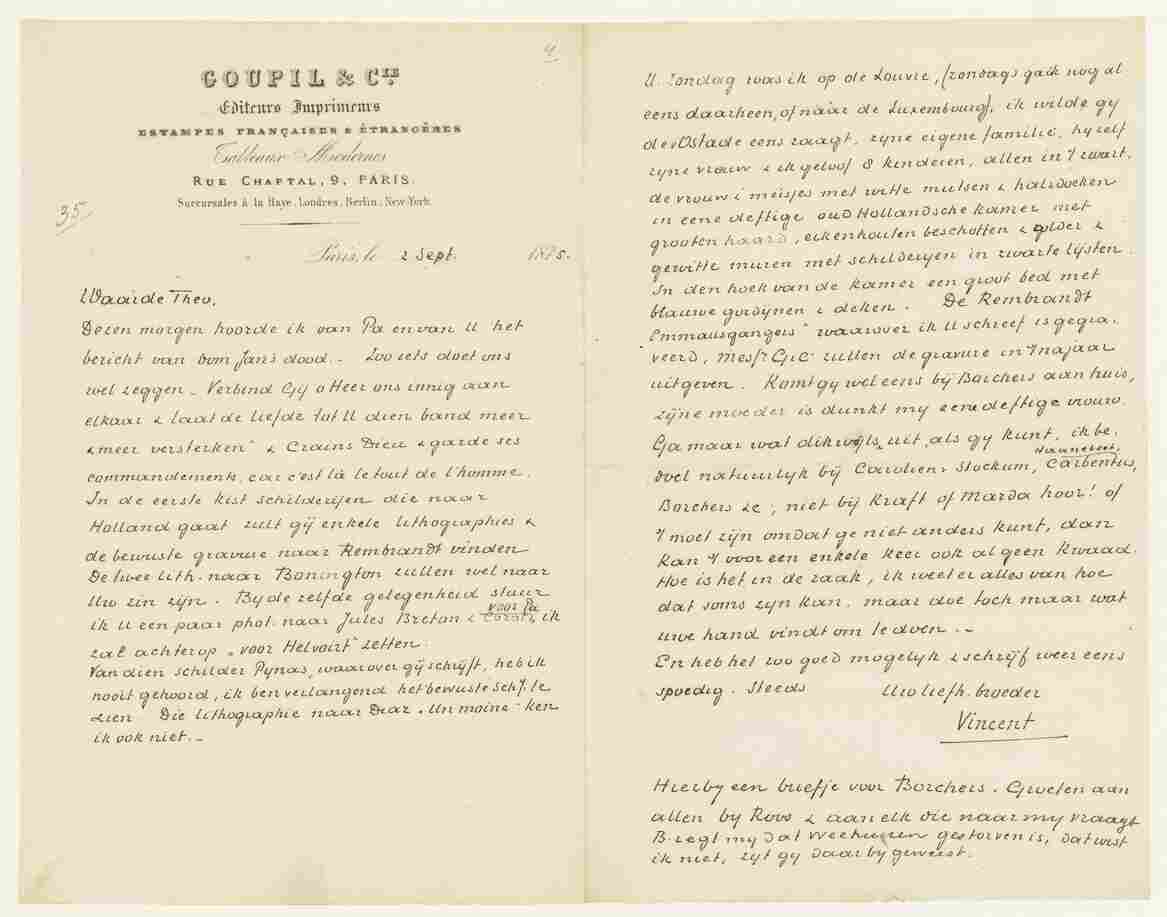 4
GOUPIL & CIE
Editeurs Imprimeurs
ESTAMPES FRANÇAISES & ÉTRANGÈRES
Tableaux Modernes
RUE CHAPTAL, 9, PARIS.
Succursales à la Haye, Londres, Berlin, New-York.
35
Paris, le 2 Sept. 1875.
Waarde Theo,
Dezen morgen hoorde ik van Pa en van U het
bericht van oom Jan's dood. – Zoo iets doet ons
wel zeggen – Verbind Gij o Heer ons innig aan
elkaar & laat de liefde tot U dien band meer
& meer versterken" & Crains Dieu & garde ses
commandements, car c'est là le tout de l'homme.
In de eerste kist schilderijen die naar
Holland gaat zult gij enkele lithographies &
de bewuste gravure naar Rembrandt vinden
De twee lith. naar Bonington zullen wel naar
Uw zin zijn. By de zelfde gelegenheid stuur
ik U een paar phot. naar Jules Breton & Corot, voor Pa ik
zal achterop „voor Helvoirt" zetten.
Van dien schilder Pynas, waarover gij schrijft, heb ik
nooit gehoord, ik ben verlangend het bewuste sch. te
zien Die lithographie naar Diaz „Un moine" ken
ik ook niet. –
U. Zondag was ik op de Louvre, (zondags ga ik nog al
eens daarheen, of naar de Luxembourg), ik wilde gy
de v Ostade eens zaagt, zyne eigene familie, hy zelf
zyne vrouw & ik geloof 8 kinderen, allen in 't zwart,
de vrouw & meisjes met witte mutsen & halsdoeken
in eene deftige oud Hollandsche kamer met
grooten haard, eikenhouten beschotten & zolder &
gewitte muren met schilderyen in zwarte lijsten.
In den hoek van de kamer een groot bed met
blauwe gordynen & deken. De Rembrandt
Emmausgangers" waarover ik U schreef is gegra-
veerd, Messrs G&C zullen de gravure in 't najaar
uitgeven. Komt gy wel eens bij Borchers aan huis,
zijne moeder is dunkt my eene deftige vrouw.
Ga maar wat dikwyls uit, als gy kunt, ik be-
doel natuurlyk bij Carolien Stockum, Haanebeek, Carbentus,
Borchers &c; niet bij Kraft of Marda hoor! of
't moet zijn omdat ge niet anders kunt, dan
kan 't voor een enkele keer ook al geen kwaad.
Hoe is het in de zaak, ik weet er alles van hoe
dat soms zyn kan, maar doe toch maar wat
uwe hand vindt om te doen. –
En heb het zoo goed mogelyk & schrijf weer eens
spoedig. Steeds Uw liefh. broeder
Vincent
Hierby een briefje voor Borchers. Groeten aan
allen by Roos & aan elk die naar my vraagt
B. zegt my dat Weehuizen gestorven is, dat wist
ik niet, zyt gy daarby geweest.